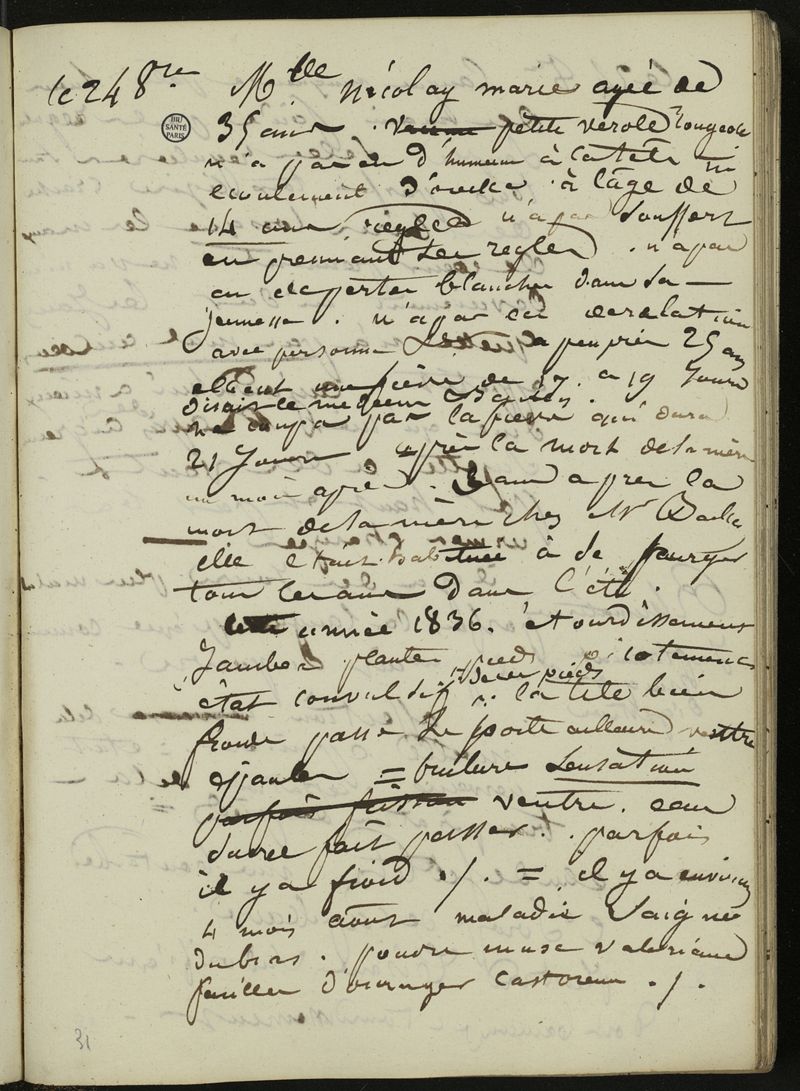 le 24 8bre Mlle Nicolay marie agée de
35 ans . petite verole rougeole
n'a pas eu d'humeur à la tete ni
ecoulement d'oreille . à l'âge de
14 ans réglée n'a pas souffert
en prennant ses regles . n'a pas
eu de pertes blanches dans sa
jeunesse . n'a pas eu de relation
avec personne a peu près 25 ans
elle eut une fièvre de 17 a 19 jours
disait le medecin
ne coupa pas la fievre qui dura
21 jours après la mort de sa mère
un mois après . 3 ans apres la
mort de sa mère chez Mr
elle etait habituée à se purger
tous les ans dans l'été .
cette année 1836 . étourdissements
jambes plantes pieds picotements
état convulsif des pieds la tete bien
froide passe se porte ailleurs ventre
epaules = brulure sensation
parfois frisson ventre . eau
sucree fait passer . parfois
il y a froid ./. = il y a environ
4 mois aout maladie saignée
du bras . poudre musc valeriane
feuilles d'oranger castoreum ./.
31
BIU SANTÉ PARIS